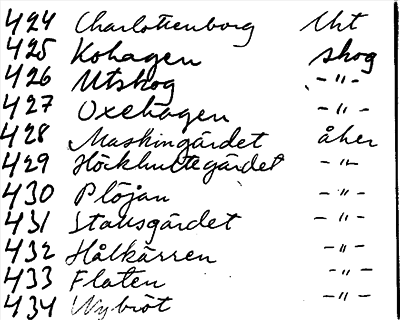 424 Charlottenborg Uht
425 Kohagen skog
426 Utskog -"-
427 Oxehagen -"-
428 Maskingärdet åker
429 Höckhultegärdet -"-
430 Plöjan -"-
431 Stausgärdet -"-
432 Hålkärren -"-
433 Flaten -"-
434 Nybröt -"-